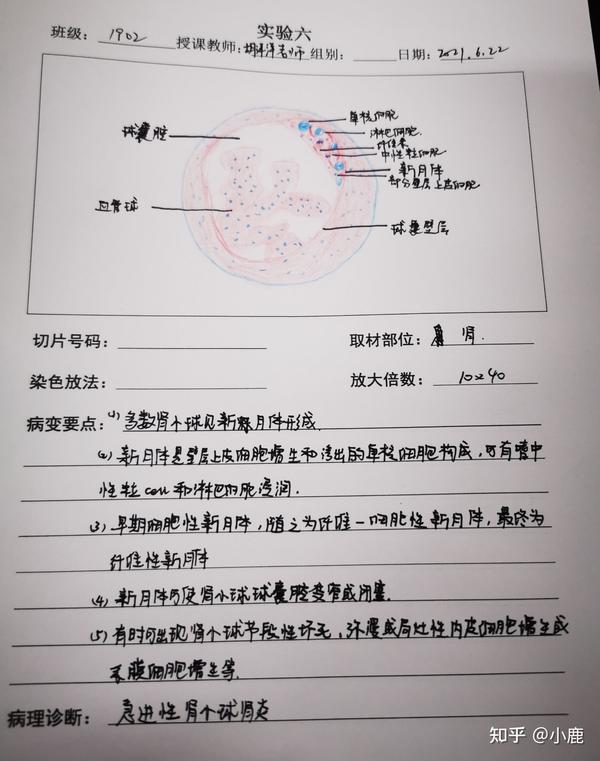 实验六
班级: 1902 授课教师: 老师 组别: 日期: 2021.6.22
单核细胞
淋巴细胞
纤维素
中性粒细胞
新月体
部分壁层上皮细胞
球囊腔
血管球
球囊壁层
切片号码: 取材部位: 肾.
染色放法: 放大倍数: 10×40
病变要点: (1) 多数肾小球见新月体形成.
(2) 新月体是壁层上皮细胞增生和渗出的单核细胞构成,可有嗜中
性粒cell和淋巴细胞浸润.
(3) 早期细胞性新月体,随之为纤维-细胞性新月体,最终为
纤维性新月体
(4) 新月体可使肾小球球囊腔变窄或闭塞.
(5) 有时可出现肾小球节段性坏死,弥漫或局灶性内皮细胞增生或
系膜细胞增生等.
病理诊断: 急进性肾小球肾炎
知乎 @小鹿